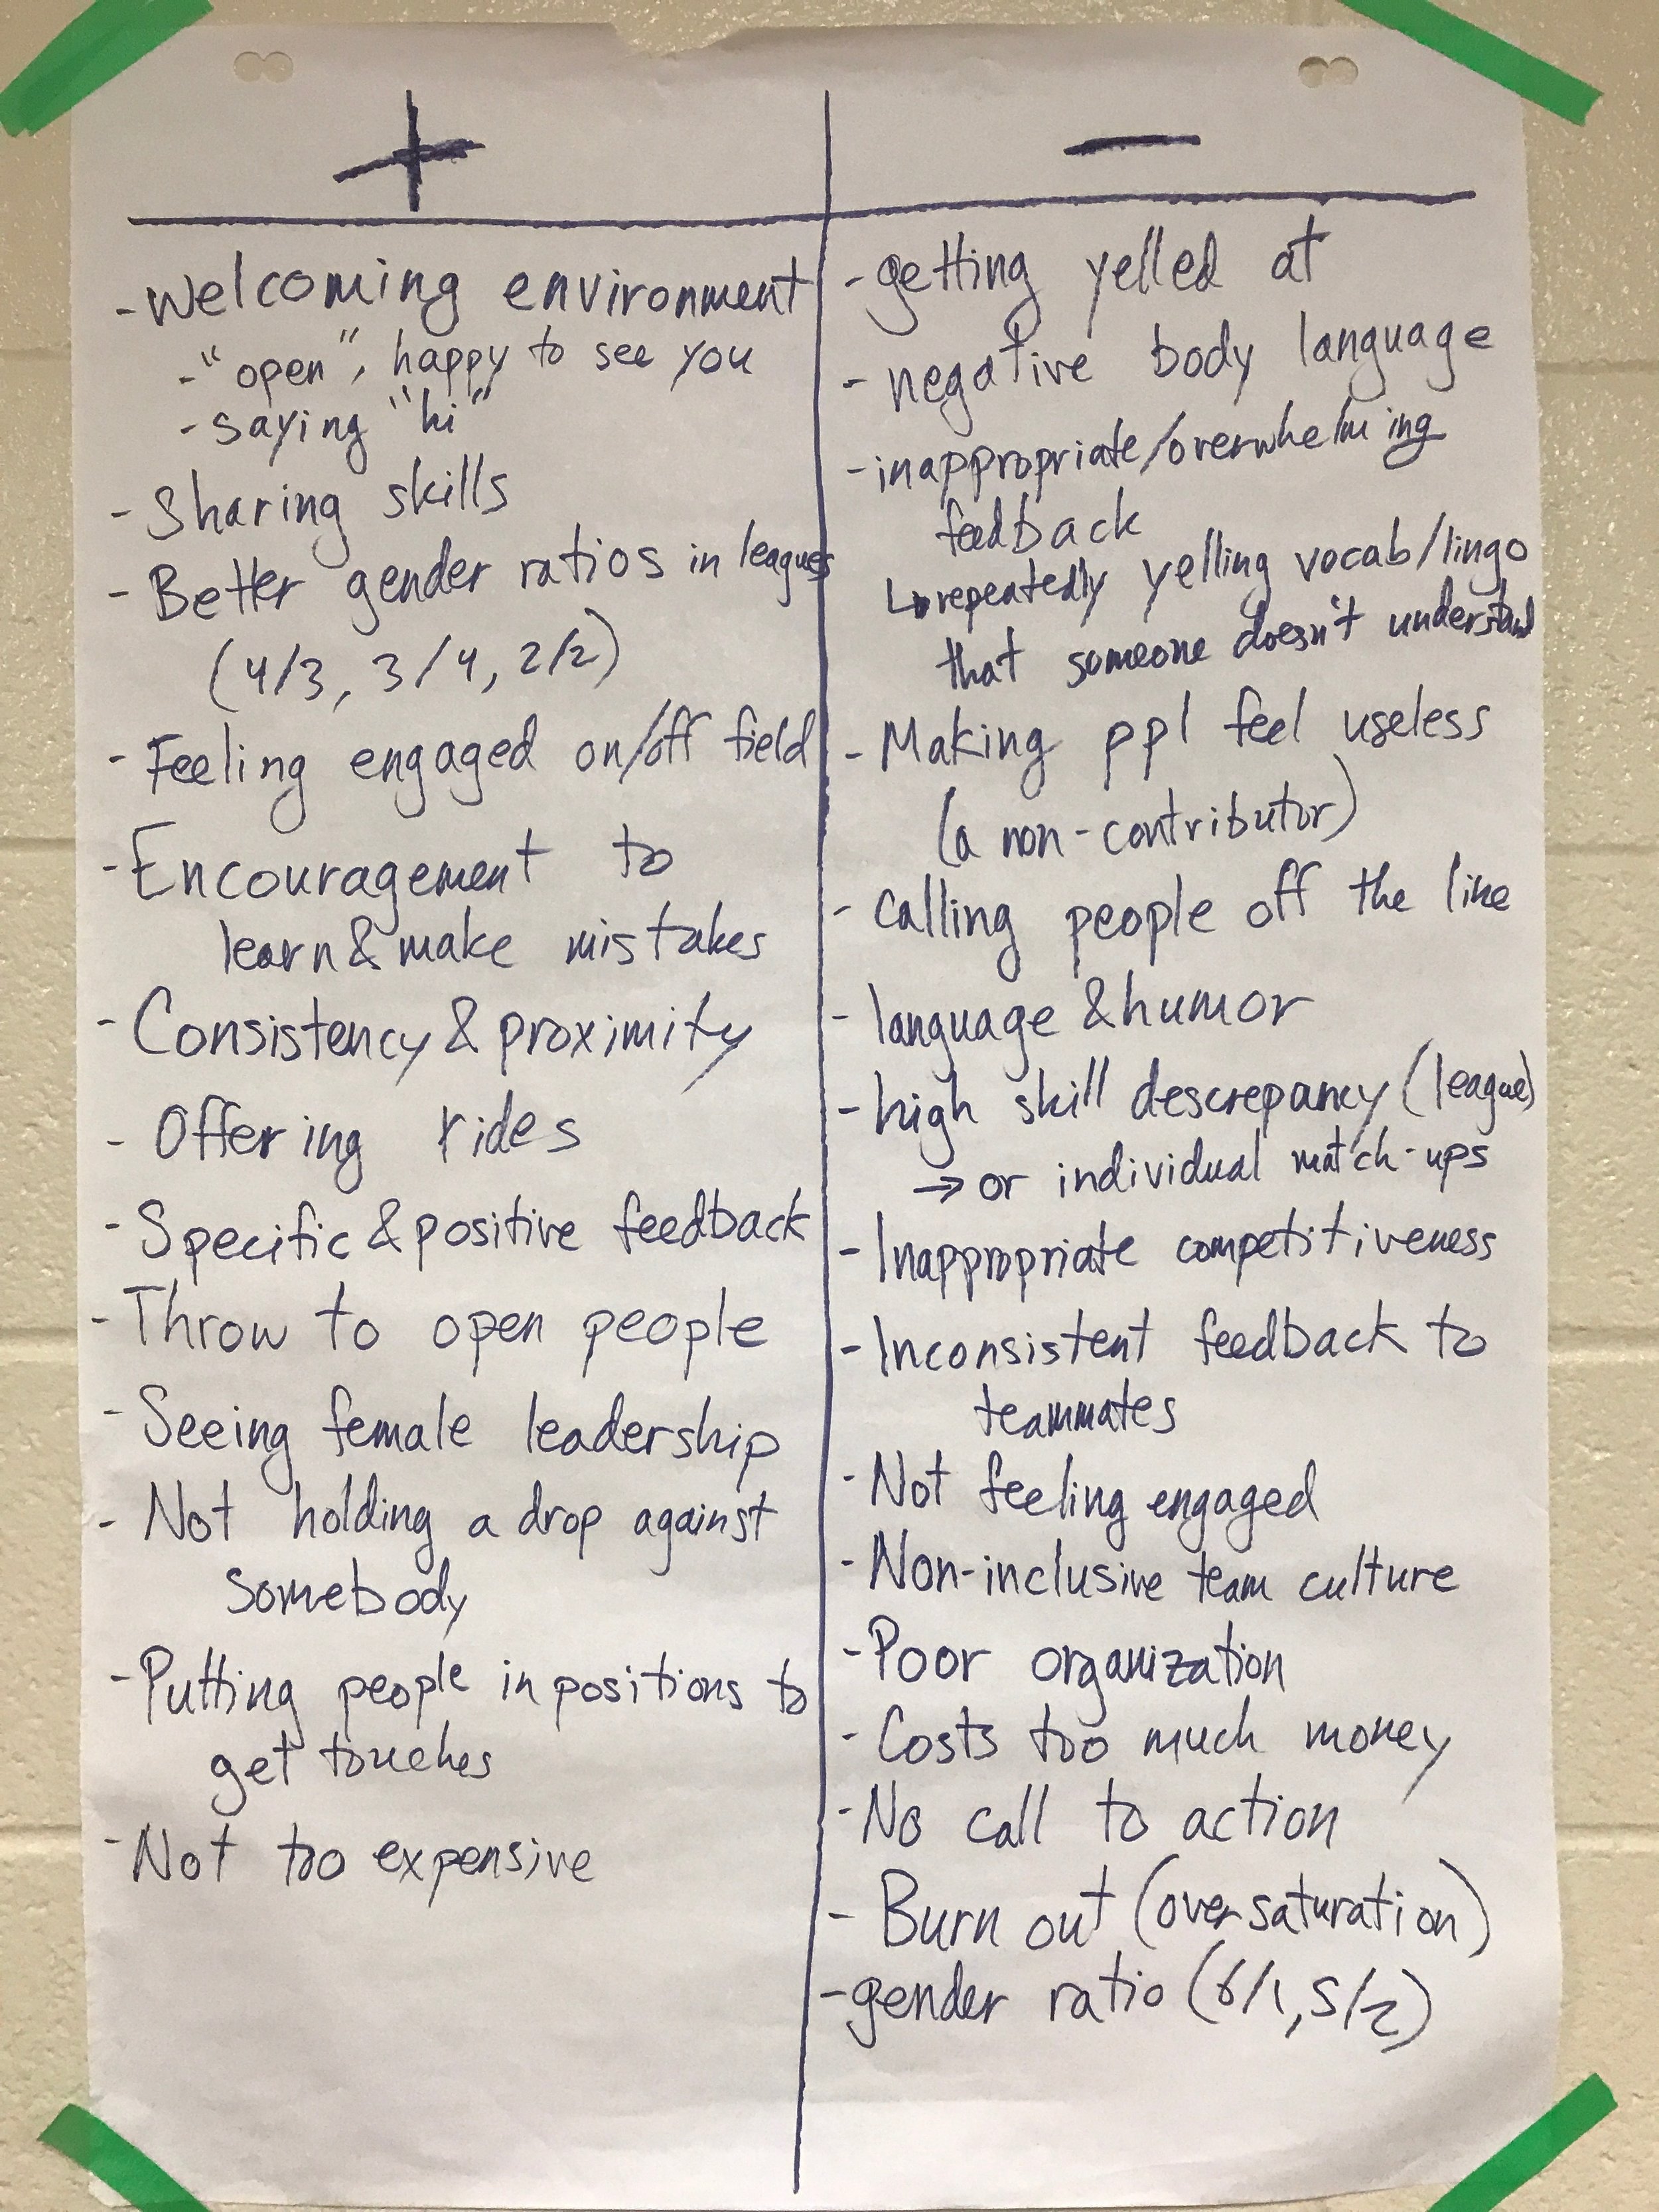 +
- Welcoming environment
- "open", happy to see you
- saying "hi"
- Sharing skills
- Better gender ratios in leagues
(4/3, 3/4, 2/2)
- Feeling engaged on/off field
- Encouragement to
learn & make mistakes
- Consistency & proximity
- Offering rides
- Specific & positive feedback
- Throw to open people
- Seeing female leadership
- Not holding a drop against
somebody
- Putting people in positions to
get touches
- Not too expensive
—
- getting yelled at
- negative body language
- inappropriate/overwhelming
feedback
↳ repeatedly yelling vocab/lingo
that someone doesn't understand
- Making ppl feel useless
(a non-contributor)
- Calling people off the line
- language & humor
- high skill descrepancy (league)
→ or individual match-ups
- Inappropriate competitiveness
- Inconsistent feedback to
teammates
- Not feeling engaged
- Non-inclusive team culture
- Poor organization
- Costs too much money
- No call to action
- Burn out (over saturation)
- gender ratio (6/1, 5/2)